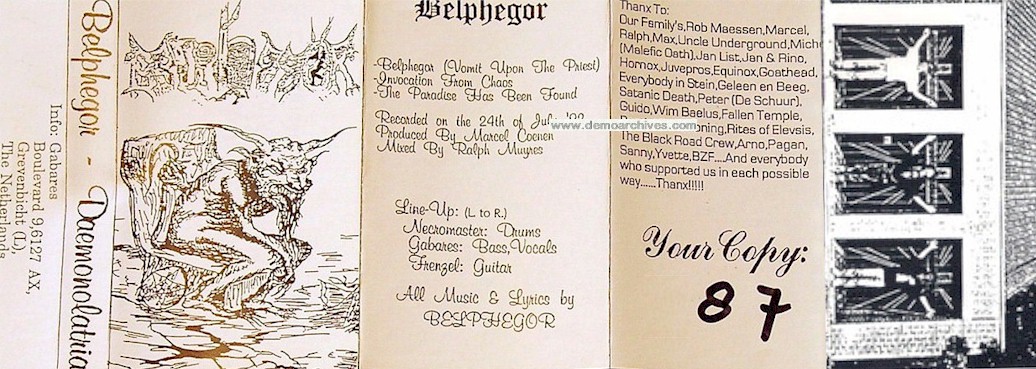 Belphegor - Daemonolatria
Info: Gabares
Boulevard 9,6127 AX,
Grevenbicht (L),
The Netherlands
Belphegor
-Belphegor (Vomit Upon The Priest)
-Invocation From Chaos
-The Paradise Has Been Found
Recorded on the 24th of July '92
Produced By Marcel Coenen
Mixed By Ralph Muyres
Line-Up: (L to R.)
Necromaster: Drums
Gabares: Bass,Vocals
Frenzel: Guitar
All Music & Lyrics by
BELPHEGOR
www.demoarchives.com
Thanx To:
Our Family's,Rob Maessen,Marcel,
Ralph,Max,Uncle Underground,Miche
(Malefic Oath),Jan List,Jan & Rino,
Hornox,Juvepros,Equinox,Goathead,
Everybody in Stein,Geleen en Beeg,
Satanic Death,Peter (De Schuur),
Guido,Wim Baelus,Fallen Temple,
ning,Rites of Elevsis,
The Black Road Crew,Arno,Pagan,
Sanny,Yvette,BZF....And everybody
who supported us in each possible
way......Thanx!!!!!
Your Copy:
87